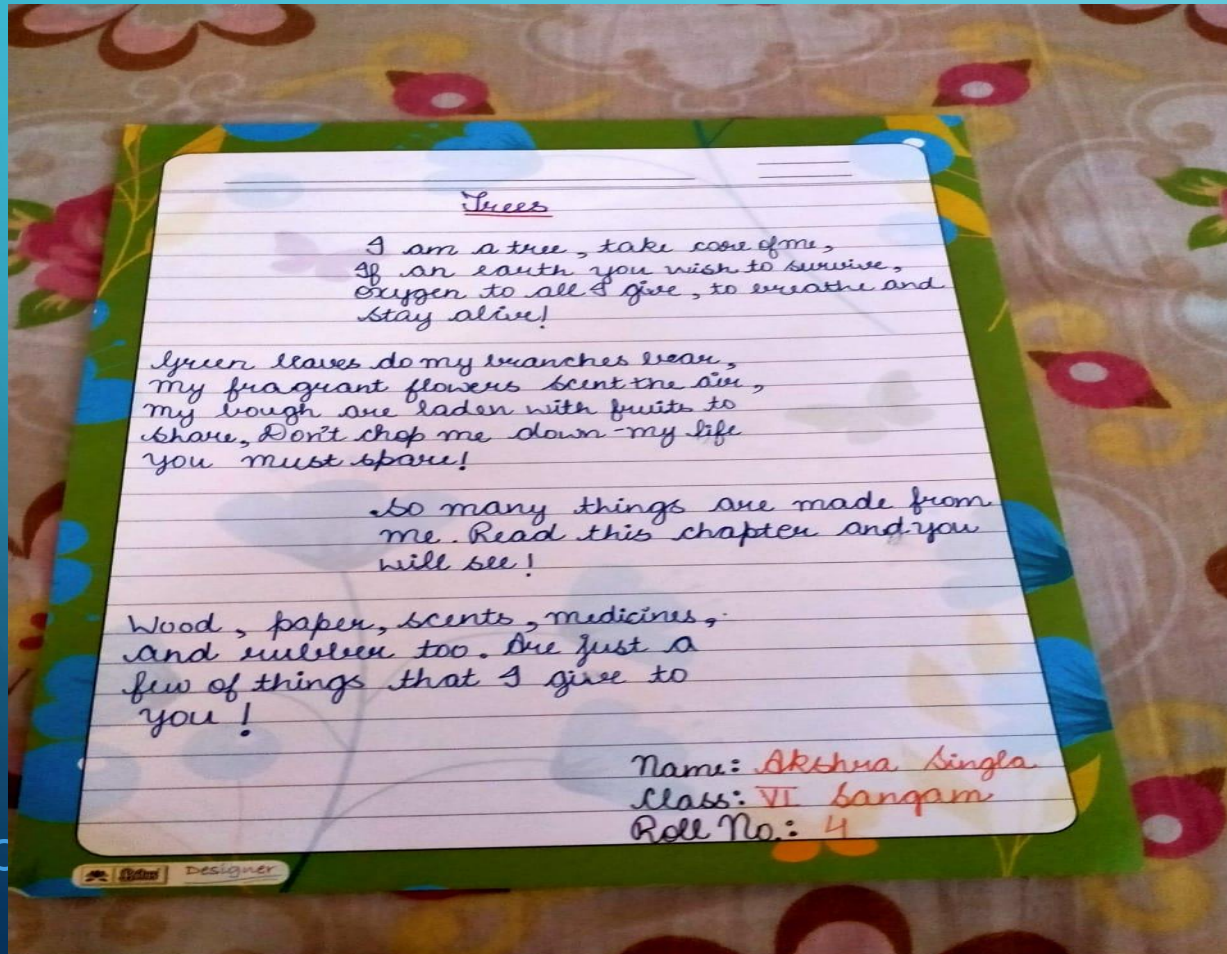 Trees
I am a tree, take care of me,
If an earth you wish to survive,
oxygen to all I give, to breathe and
stay alive!
Green leaves do my branches bear,
my fragrant flowers scent the air,
my bough are laden with fruits to
share, Don't chop me down - my life
you must spare!
So many things are made from
me. Read this chapter and you
will see!
Wood, paper, scents, medicines,
and rubber too. Are just a
few of things that I give to
you!
Name: Akshra Singla
Class: VI Sangam
Roll No.: 4
Designer